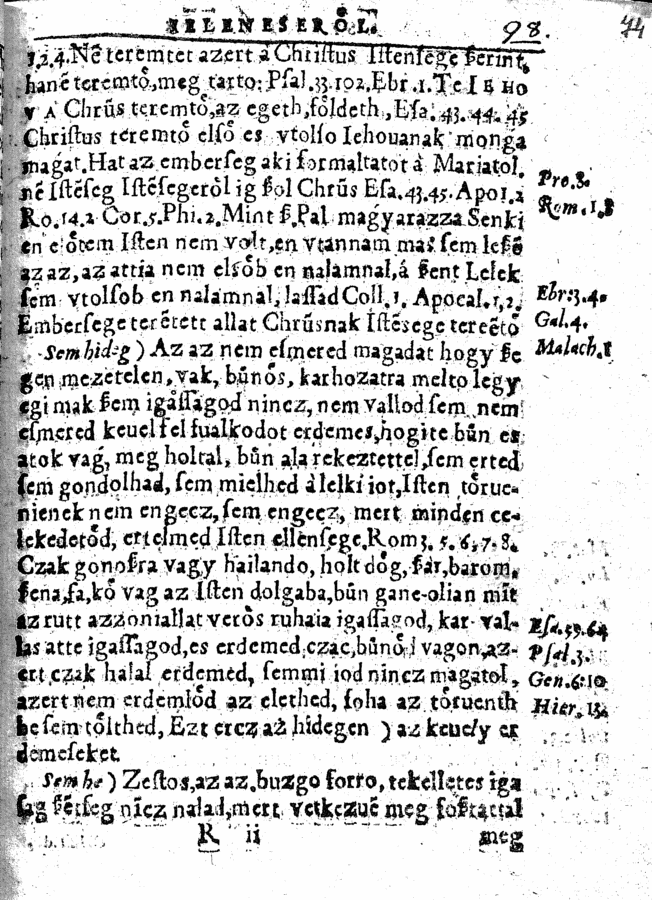 IELENESERO̊L. 98. 44
1.2.4. Nē teremtet azert à Chriſtus Iſtenſege ſzerint,
hanē teremto̊, meg tarto: Pſal. 33. 102. Ebr. 1. Te IEHO
VA Chrūs teremto̊, az egeth, fo̊ldeth, Eſa. 43. 44. 45
Chriſtus teremto̊ elſo̊ es vtolſo Iehouanak monga
magát. Hat az emberſeg aki formaltatot à Mariatol.
nē Iſtēſeg Iſtēſegero̊l ig ſzol Chrūs Eſa. 43. 45. Apo 1. 2
Ro. 14. 2 Cor. 5. Phi. 2. Mint ſz. Pal magýarazza Senki
en elo̊tem Iſten nem volt, en vtannam mas ſem leſzē
az az, az attia nem elſo̊b en nalamnal, á ſzent Lelek
ſem vtolſob en nalamnal, laſſad Coll. 1. Apocal. 1, 2.
Emberſege terētett allat Chrūsnak Iſtēsege tereēto̊
Sem hideg ) Az az nem eſmered magadat hogy ſze
gen mezetelen, vak, bűno̊s, karhozatra melto legy
egi mak ſzem igáſſagod nincz, nem vallod ſem nem
eſmered keuel fel fualkodot erdemes, hogite bűn es
atok vaǵ, meg holtal, bűn ala rekeztettel, ſem erted
ſem gondolhad, ſem mielhed à lelki iot, Iſten to̊rue-
nienek nem engecz, ſem engecz, mert minden ce-
lekedeto̊d, ertelmed Iſten ellenſege. Rom 3. 5. 6, 7. 8.
Czak gonoſzra vagy hailando, holt do̊g, ſzár, barom,
ſzena, fa, ko̊ vag az Iſten dolgaba, bűn gane-olian mīt
az rutt azzoniallat vero̊s ruhaia igaſſagod, kar val-
las atte igaſſagod, es erdemed czac, bűno̊l vagon, az-
ert czak halal erdemed, ſemmi iod nincz magatol,
azert nem erdemlo̊d az elethed, ſoha az to̊ruenth
be ſem to̊lthed, Ezt ercz až hidegen ) az keuely er
demeſeket.
Sem he ) Zeſtos, az az, buzgo forro, tekelletes iga
ſag ſzētſeg nīcz nalad, mert vetkezuē meg foſztattal
R ii meg
Pro. 8.
Rom. 1. 8
Ebr: 3. 4.
Gal. 4.
Malach. 1
Eſa. 59. 64
Pſal. 3.
Gen. 6: 10
Hier. 13.